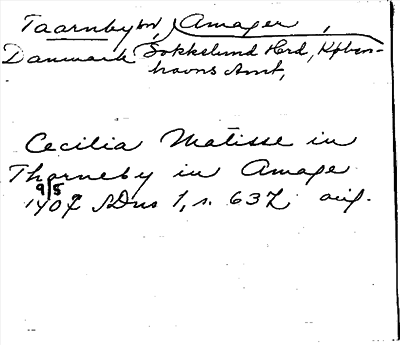 Taarnby sn, Amager,
Danmark Sokkelund Hrd, Køben-
havns Amt,
Cecilia Matisse in
Thorneby in Amage
9/5
1407 ADns 1, s. 637 orig.